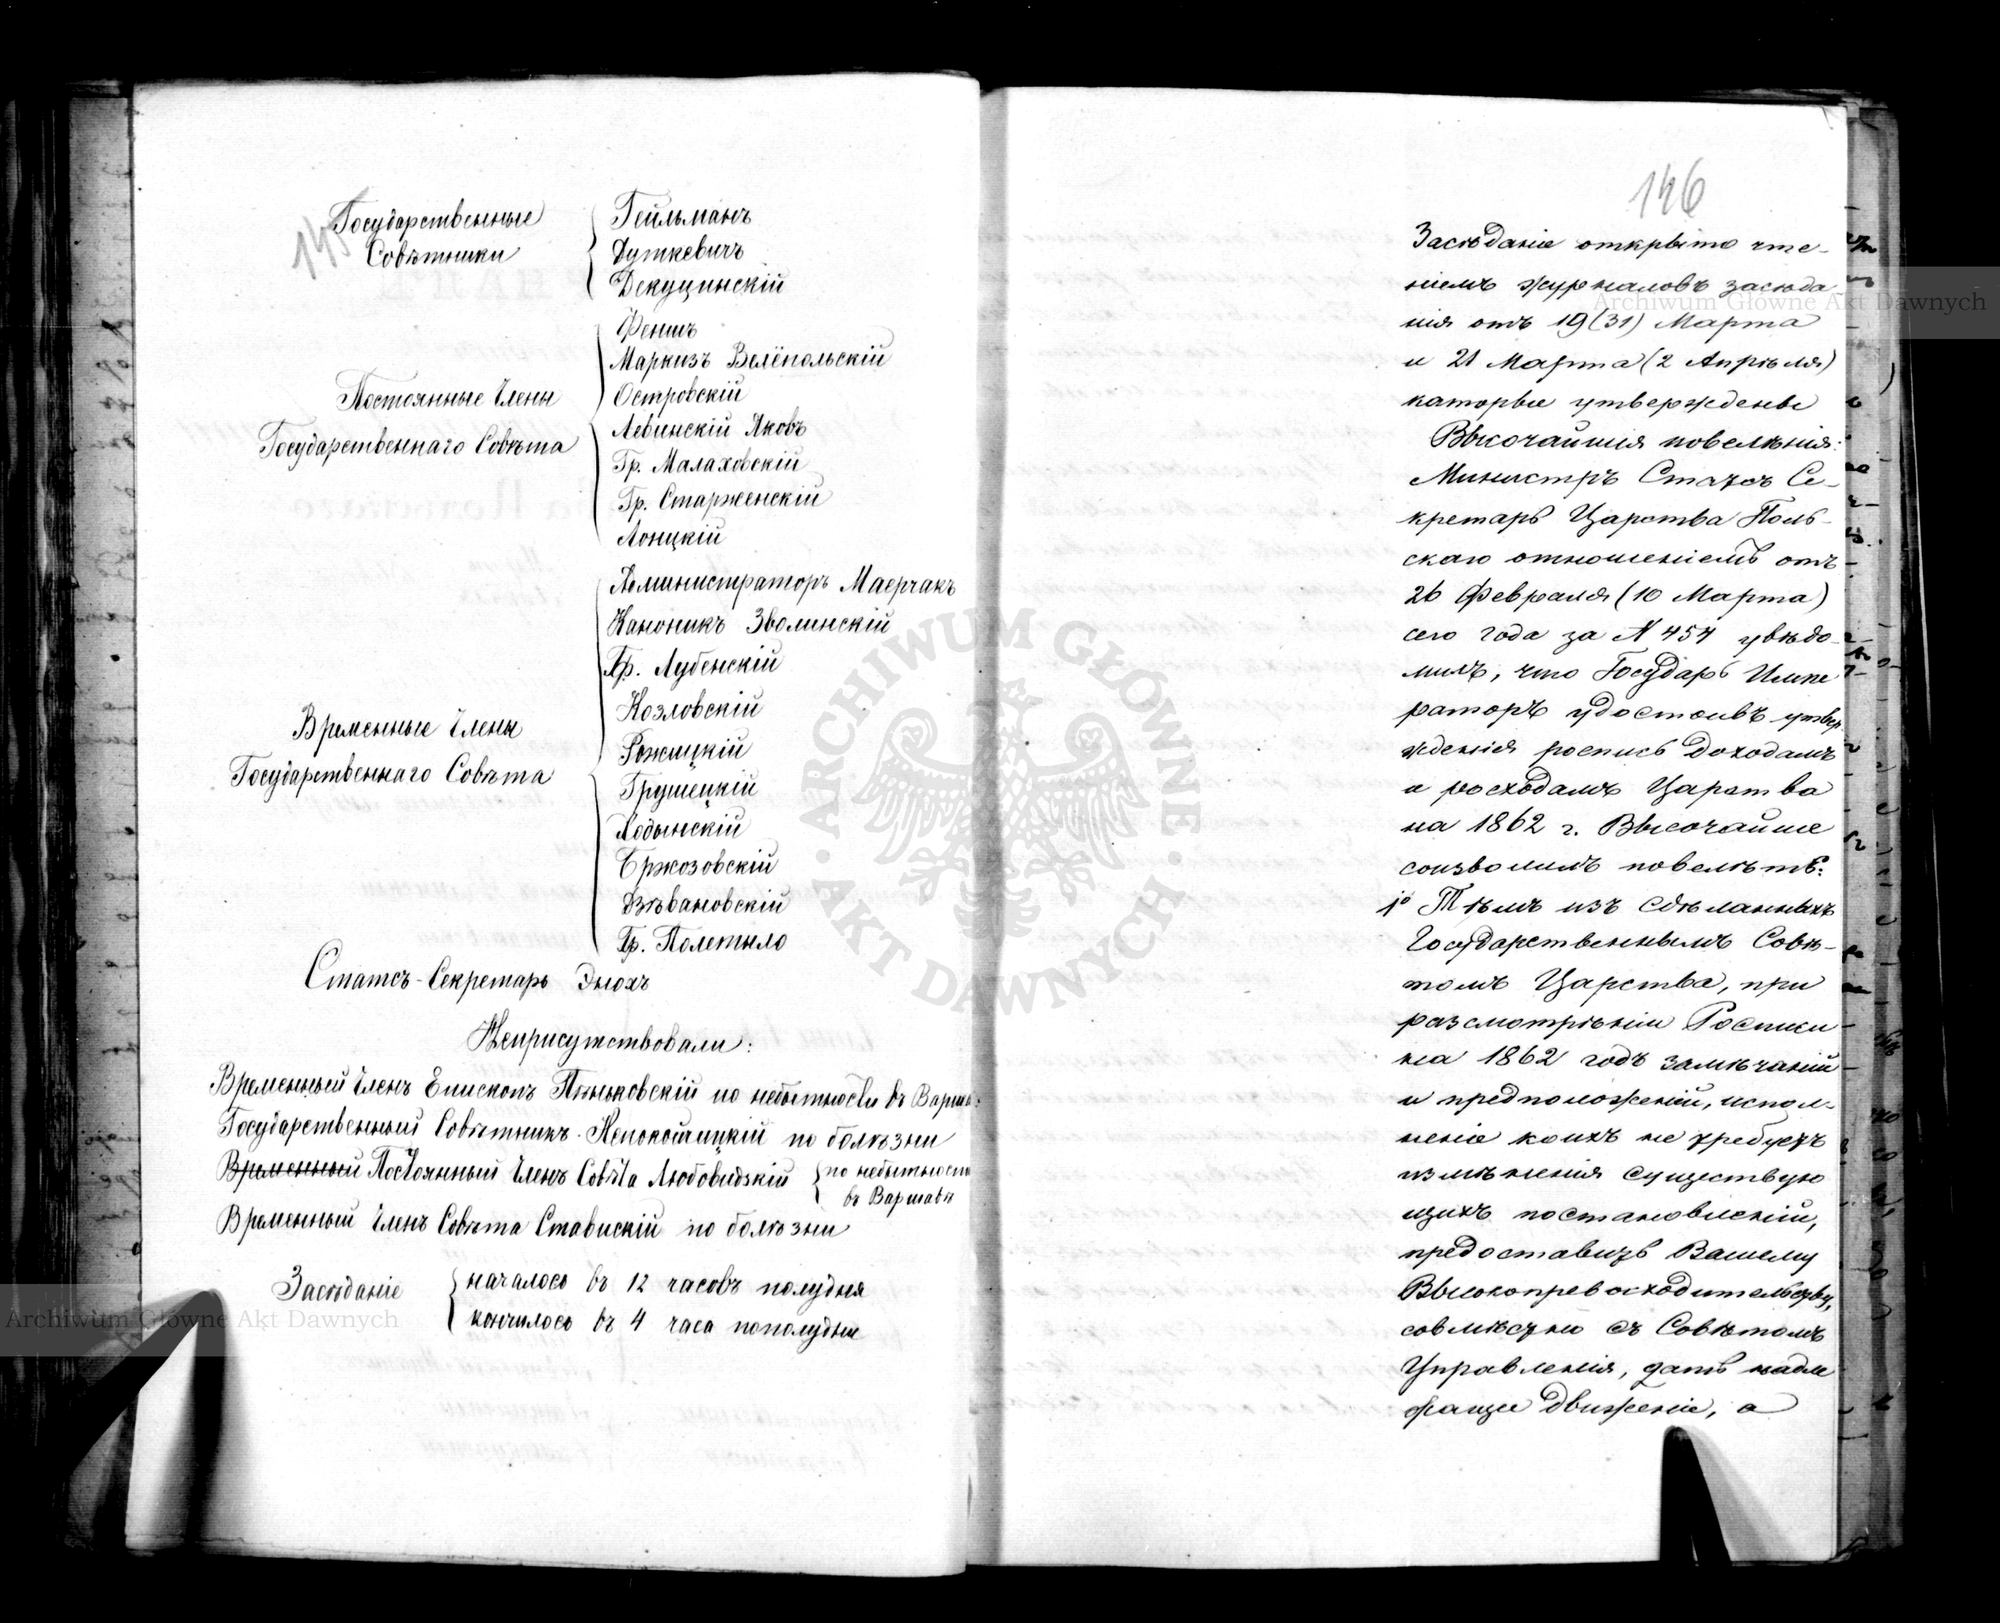 145
Государственные Совѣтники
Гейльманъ
Дуткевичъ
Декуцинскій
Постоянные Члены Государственнаго Совѣта
Феншъ
Маркизъ Велёпольскій
Островскій
Левинскій Яковъ
Гр. Малаховскій
Гр. Старженскій
Лонцкій
Временные Члены Государственнаго Совѣта
Администраторъ Маерчакъ
Каноникъ Зволинскій
Гр. Лубенскій
Козловскій
Рожицкій
Грушецкій
Лодынскій
Бржозовскій
Дѣвановскій
Гр. Полетыло
Статсъ-Секретарь Энохъ
Неприсутствовали:
Временный Членъ Епископъ Пѣньковскій по небытности въ Варш.
Государственный Совѣтникъ Непокойчицкій по болѣзни
Временный Постоянный Членъ Совѣта Любовидзкій по небытности
въ Варшавѣ
Временный Членъ Совѣта Ставискій по болѣзни
Засѣданіе
началось въ 12 часовъ полудня
кончилось въ 4 часа пополудни
146
Засѣданіе открыто чте-
ніемъ журналовъ засѣда
нія отъ 19 (31) Марта
и 21 Марта (2 Апрѣля)
каторые утверждены
Высочайшія повелѣнія:
Министръ Статсъ Се-
кретарь Царства Поль-
скаго отношеніемъ отъ
26 Февраля (10 Марта)
сего года за N 454 увѣдо-
милъ, что Государь Импе
раторъ удостоивъ утвер
жденія роспись доходамъ
и расходамъ Царства
на 1862 г. Высочайше
соизволилъ повелѣть:
1º Тѣмъ изъ сдѣланныхъ
Государственнымъ Совѣ-
томъ Царства, при
разсмотрѣніи Росписи
на 1862 годъ замѣчаній
и предположеній, испол-
неніе коихъ не требуетъ
измѣненія существую
щихъ постановленій,
предоставить Вашему
Высокопревосходительству,
совмѣстно съ Совѣтомъ
Управленія, дать надле
жащее движеніе, а
Archiwum Główne Akt Dawnych
Archiwum Główne Akt Dawnych
ARCHIWUM GŁÓWNE
AKT DAWNYCH